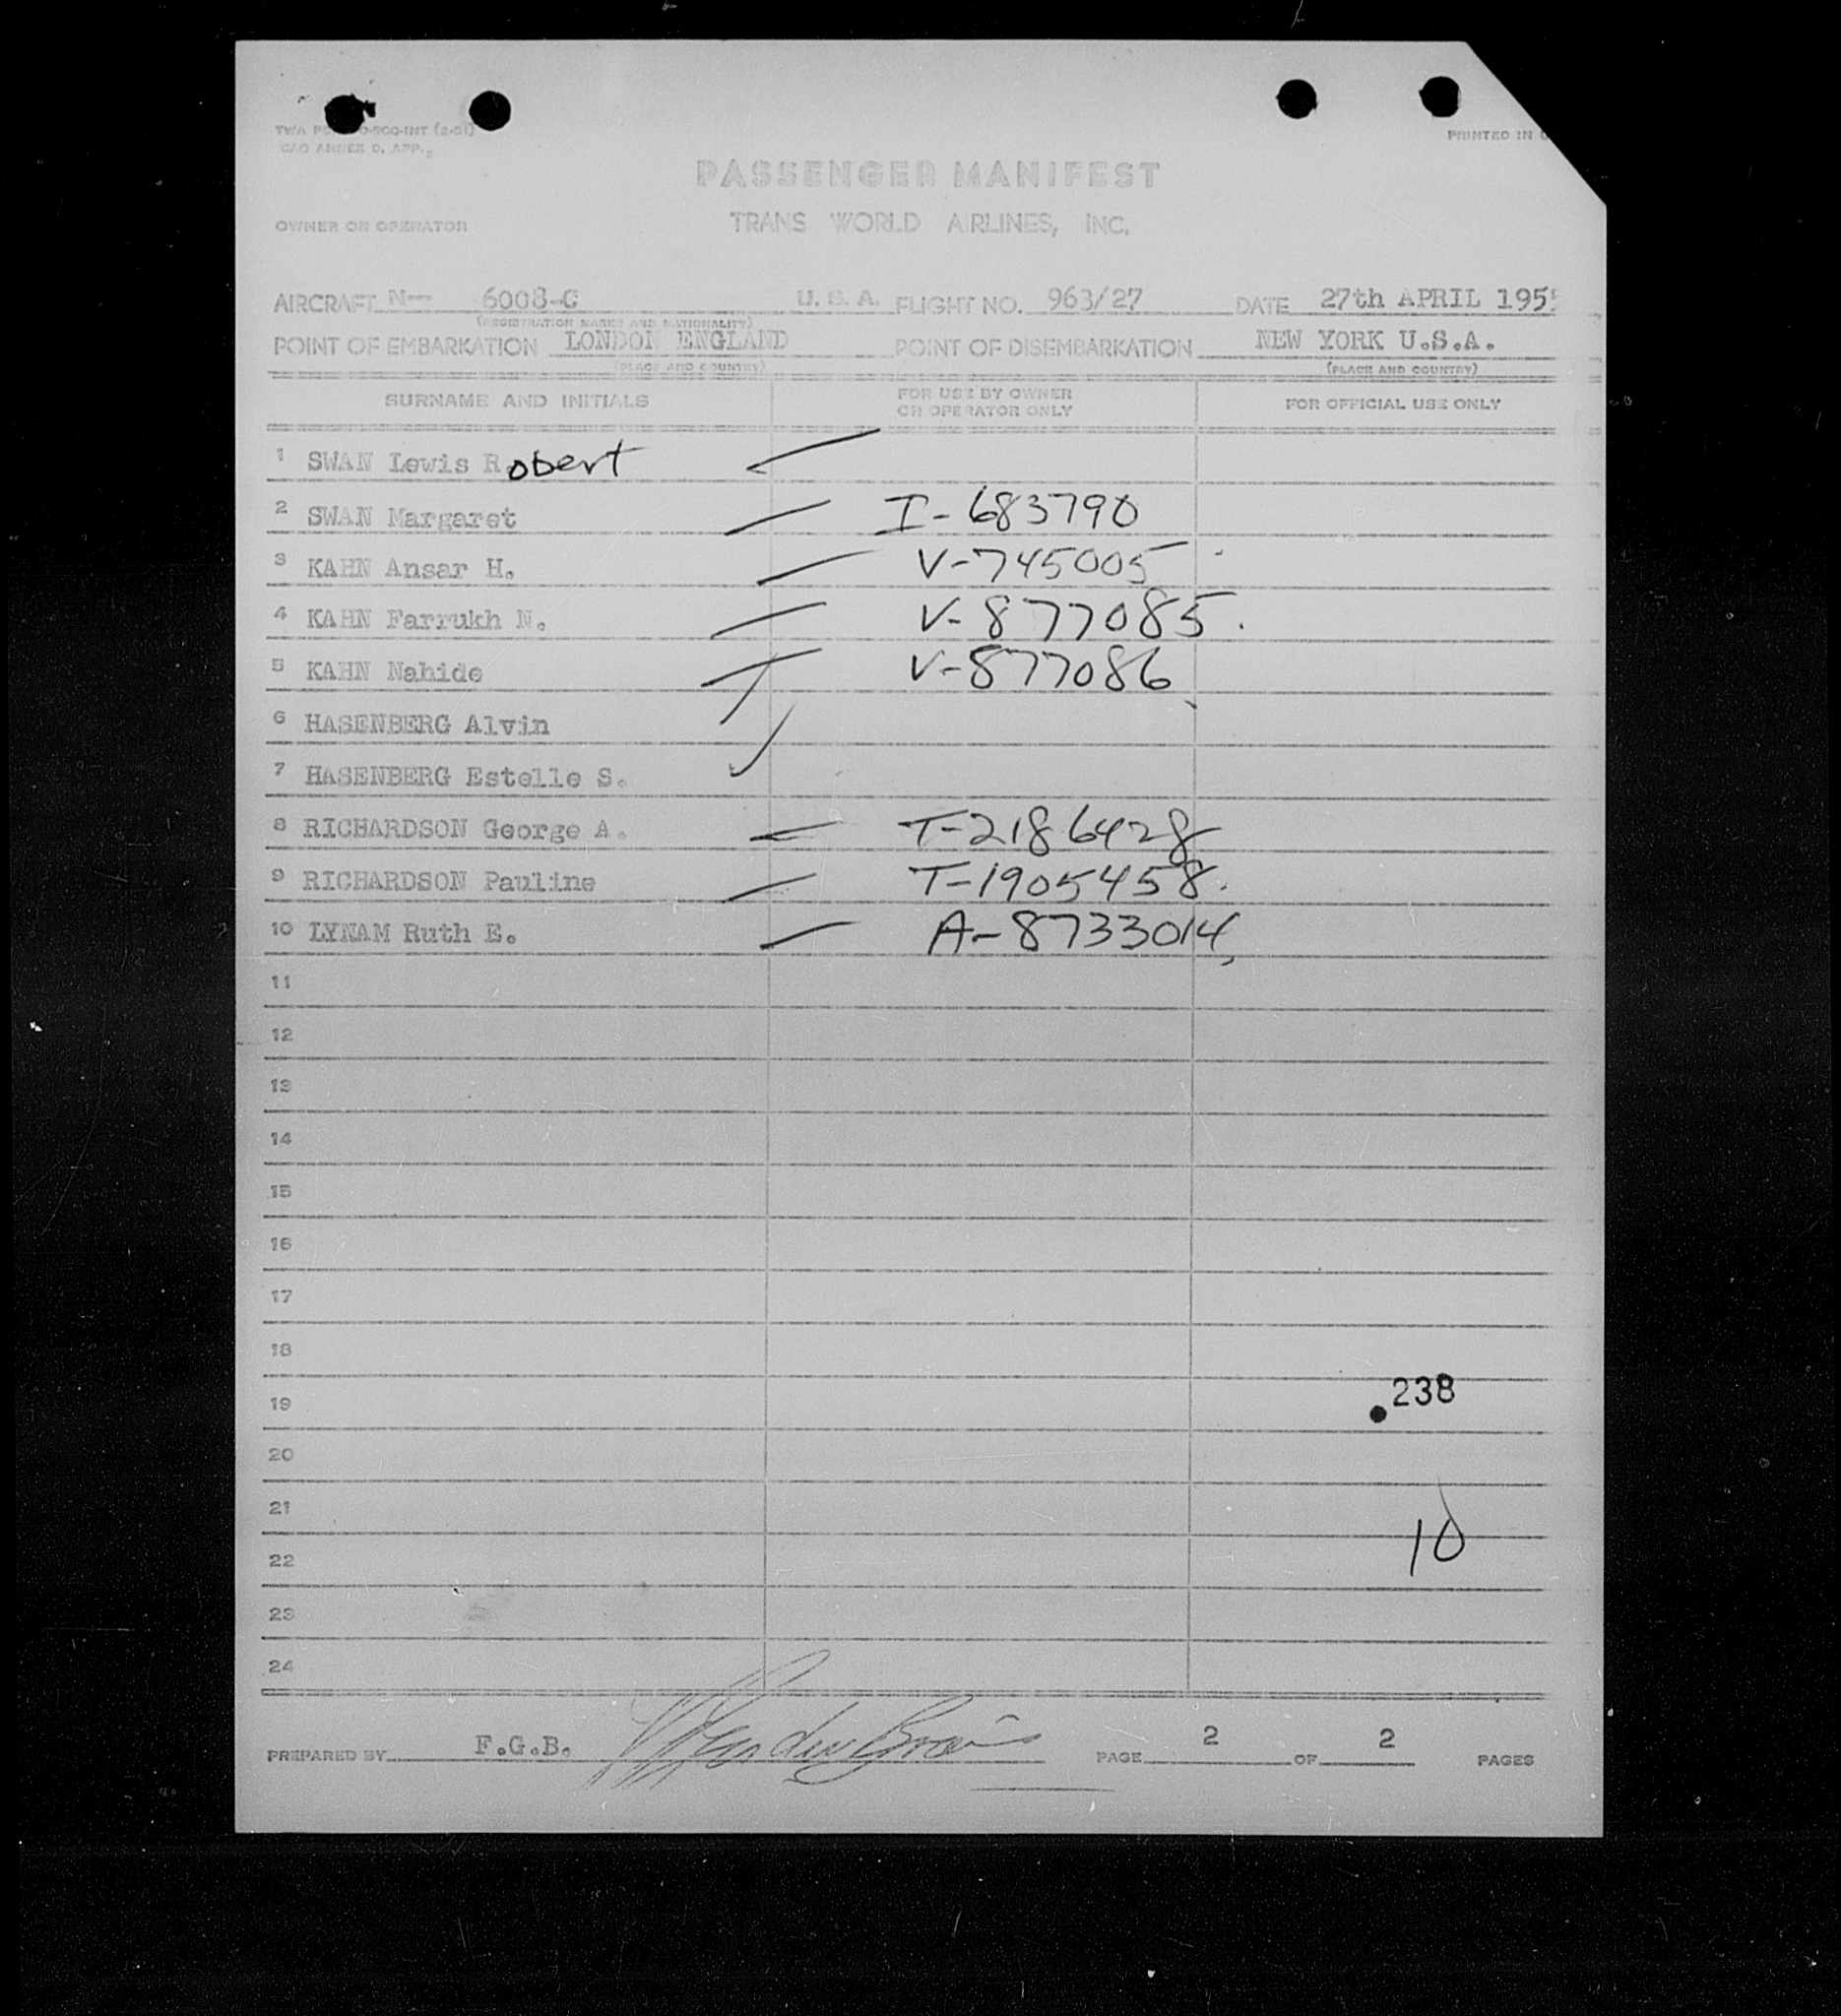 TWA -900-INT
CAO ANNEX D. APP.
PRINTED IN
PASSENGER MANIFEST
OWNER OR OPERATOR
TRANS WORLD AIRLINES, INC.
AIRCRAFT N— 6008-C U. S. A. FLIGHT NO. 963/27 DATE 27th APRIL 1955
(REGISTRATION MARKS AND NATIONALITY)
POINT OF EMBARKATION LONDON ENGLAND POINT OF DISEMBARKATION NEW YORK U.S.A.
(PLACE AND COUNTRY) (PLACE AND COUNTRY)
SURNAME AND INITIALS FOR USE BY OWNER OR OPERATOR ONLY FOR OFFICIAL USE ONLY
1 SWAN Lewis Robert
2 SWAN Margaret I-683790
3 KAHN Ansar H. V-745005
4 KAHN Farrukh N. V-877085.
5 KAHN Nahide V-877086
6 HASENBERG Alvin
7 HASENBERG Estelle S.
8 RICHARDSON George A. T-2186428
9 RICHARDSON Pauline T-1905458.
10 LYNAM Ruth E. A-8733014
11
12
13
14
15
16
17
18
19 238
20
21
22 10
23
24
PREPARED BY F.G.B. PAGE 2 OF 2 PAGES